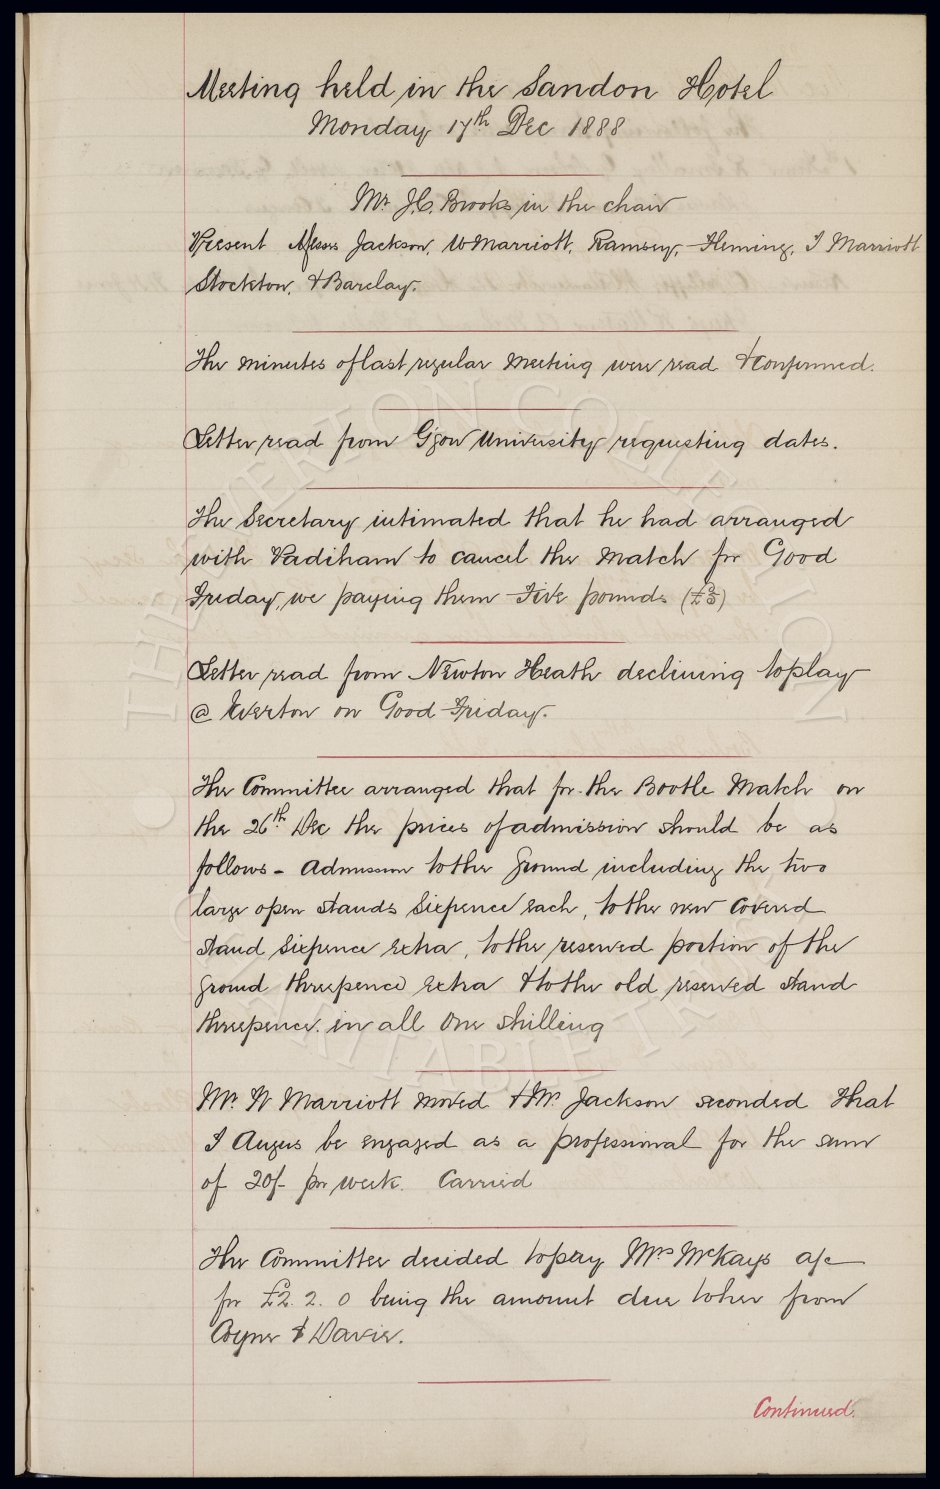 Meeting held in the Sandon Hotel
Monday 17th Dec 1888
Mr. J.C. Brooks in the chair
Present Messrs Jackson, W Marriott, Ramsey, Fleming, J Marriott
Stockton, & Barclay.
The minutes of last regular meeting were read & confirmed.
Letter read from G'gow University requesting dates.
The Secretary intimated that he had arranged
with Padiham to cancel the match for Good
Friday, we paying them Five pounds (£5)
Letter read from Newton Heath declining to play
@ Everton on Good Friday.
The Committee arranged that for the Bootle Match on
the 26th Dec the prices of admission should be as
follows - Admission to the ground including the two
large open stands Sixpence each, to the new covered
stand Sixpence extra, to the reserved portion of the
ground threepence extra & to the old reserved stand
threepence. in all One Shilling
Mr. W Marriott moved & Mr. Jackson seconded that
J Angus be engaged as a professional for the sum
of 20/- per week. Carried
The Committee decided to pay Mrs McKays a/c
for £2. 2. 0 being the amount due to her from
Coyne & Davie.
Continued.
THE EVERTON COLLECTION
CHARITABLE TRUST